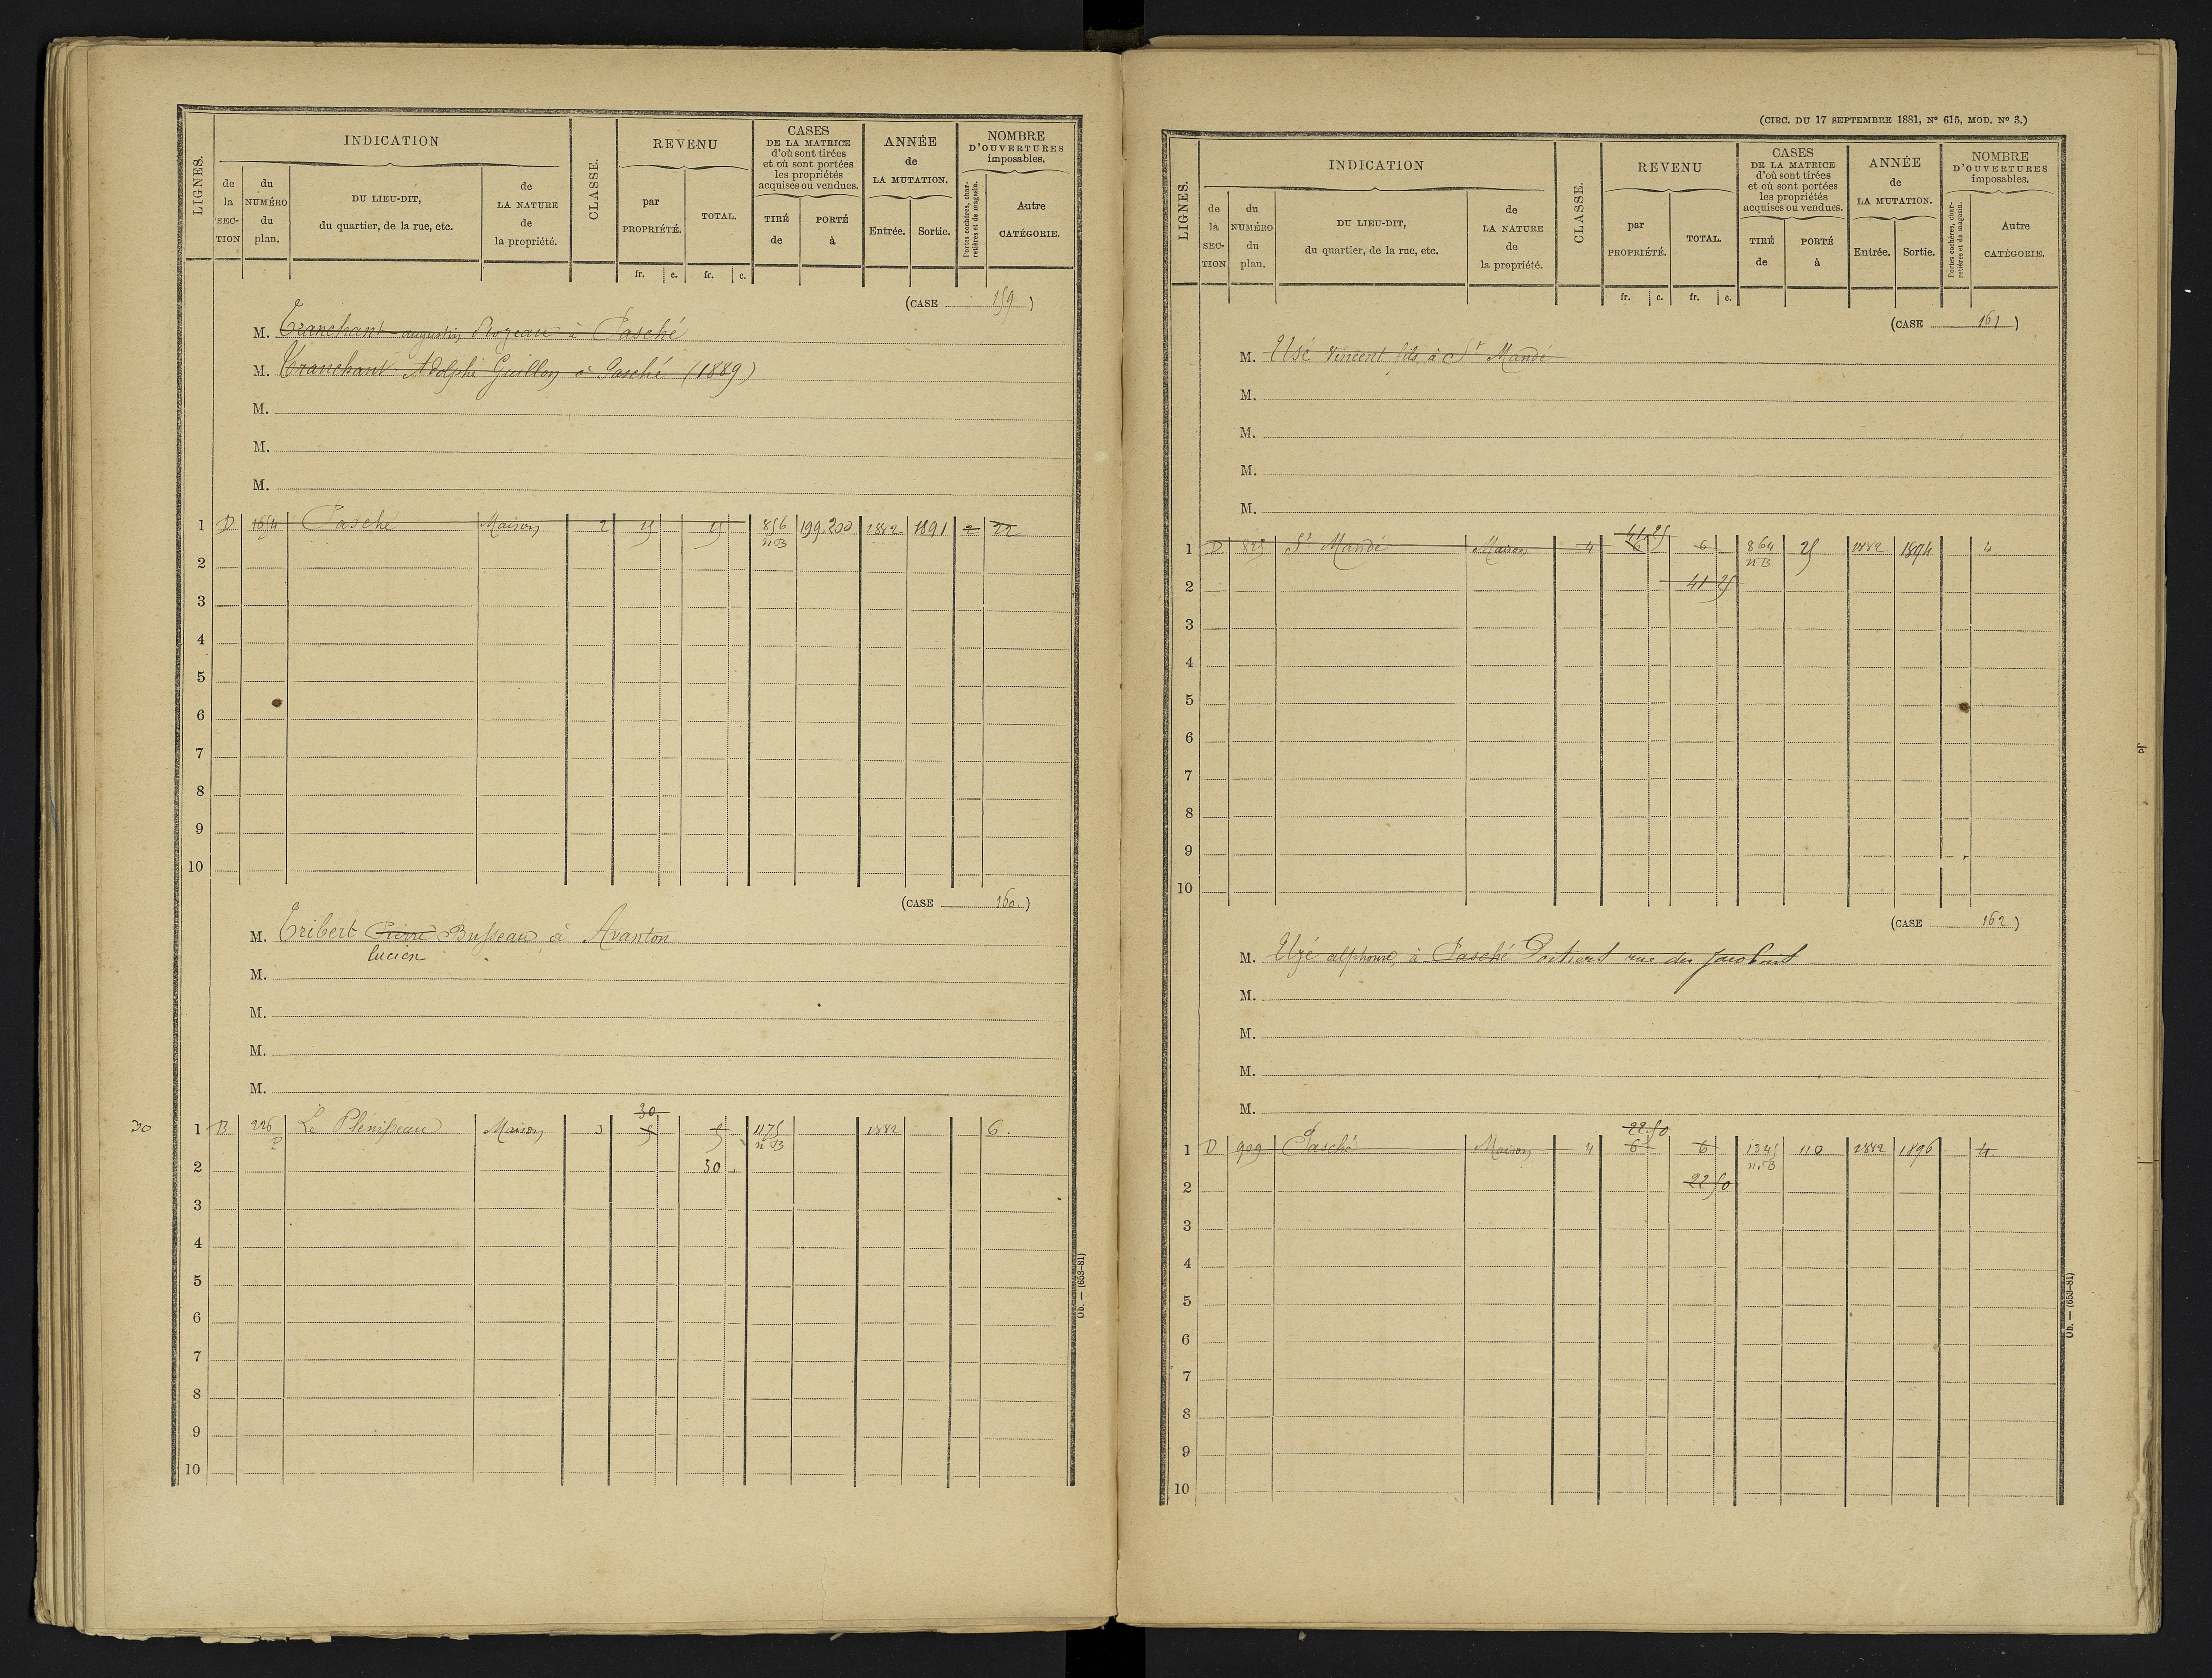 LIGNES.
INDICATION
de la SECTION
du NUMÉRO du plan.
DU LIEU-DIT, du quartier, de la rue, etc.
de LA NATURE de la propriété.
CLASSE.
REVENU
par PROPRIÉTÉ.
TOTAL.
fr. c. fr. c.
CASES DE LA MATRICE d'où sont tirées et où sont portées les propriétés acquises ou vendues.
TIRÉ de
PORTÉ à
ANNÉE de LA MUTATION.
Entrée. Sortie.
NOMBRE D'OUVERTURES imposables.
Portes cochères, charretières et de magasin.
Autre CATÉGORIE.
(CASE 159)
M. Tranchant augustin Rozeau à Pasché
M. Tranchant Adolphe Guillon à Pasché (1889)
M.
M.
M.
1 D 1654 Pasché Maison 2 15 15 856 n B 199.200 1882 1891 2 22
2
3
4
5
6
7
8
9
10
(CASE 160.)
M. Tribert Pierre Busseau à Avanton
lucien
M.
M.
M.
M.
30
30 1 B 226 P Le Plénisseau Maison 3 5 5 1175 n B 1882 6.
2 30
3
4
5
6
7
8
9
10
Ob. — (653-81)
(CIRC. DU 17 SEPTEMBRE 1881, N° 615, MOD. N° 3.)
LIGNES.
INDICATION
de la SECTION
du NUMÉRO du plan.
DU LIEU-DIT, du quartier, de la rue, etc.
de LA NATURE de la propriété.
CLASSE.
REVENU
par PROPRIÉTÉ.
TOTAL.
fr. c. fr. c.
CASES DE LA MATRICE d'où sont tirées et où sont portées les propriétés acquises ou vendues.
TIRÉ de
PORTÉ à
ANNÉE de LA MUTATION.
Entrée. Sortie.
NOMBRE D'OUVERTURES imposables.
Portes cochères, charretières et de magasin.
Autre CATÉGORIE.
(CASE 161)
M. Usé Vincent fils, à St Mandé
M.
M.
M.
M.
41.25
1 D 825 St Mandé Maison 4 6 6 864 n B 25 1882 1894 4
2 41 25
3
4
5
6
7
8
9
10
(CASE 162)
M. Uzé alphonse, à Pasché Poitiers rue des Jacobins
M.
M.
M.
M.
22.50
1 D 909 Pasché Maison 4 6 6 1345 n.B 110 1882 1896 4.
2 22 50
3
4
5
6
7
8
9
10
Ob. — (653-81)